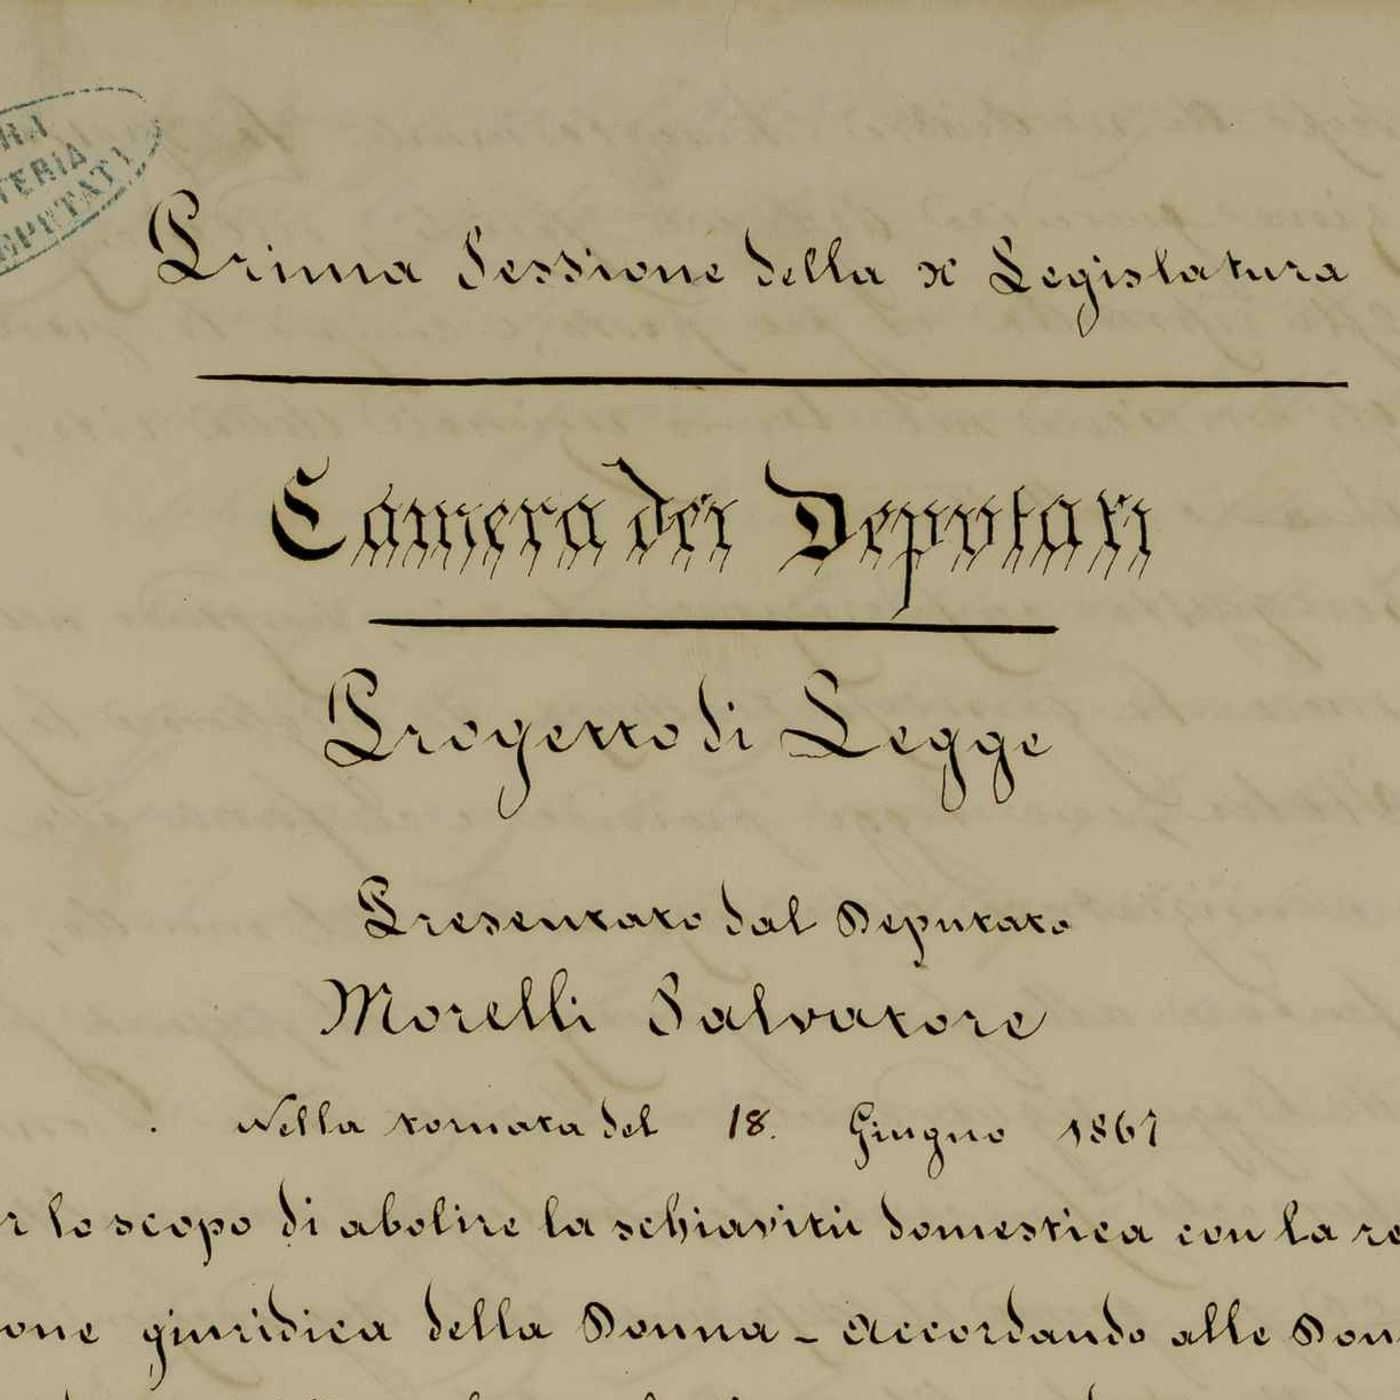 RA
TERIA
DEPUTATI
Prima Sessione della X Legislatura
Camera dei Deputati
Progetto di Legge
Presentato dal Deputato
Morelli Salvatore
Nella tornata del 18. Giugno 1867
r lo scopo di abolire la schiavitù domestica con la re
one giuridica della Donna - Accordando alle Don